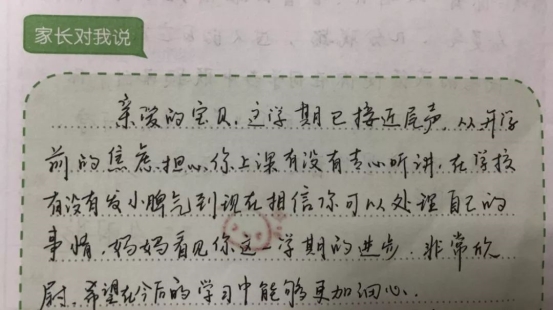 家长对我说
亲爱的宝贝,这学期已接近尾声,从开学
前的焦虑担心你上课有没有专心听讲,在学校
有没有发小脾气到现在相信你可以处理自己的
事情,妈妈看见你这一学期的进步,非常欣
尉,希望在今后的学习中能够更加细心.